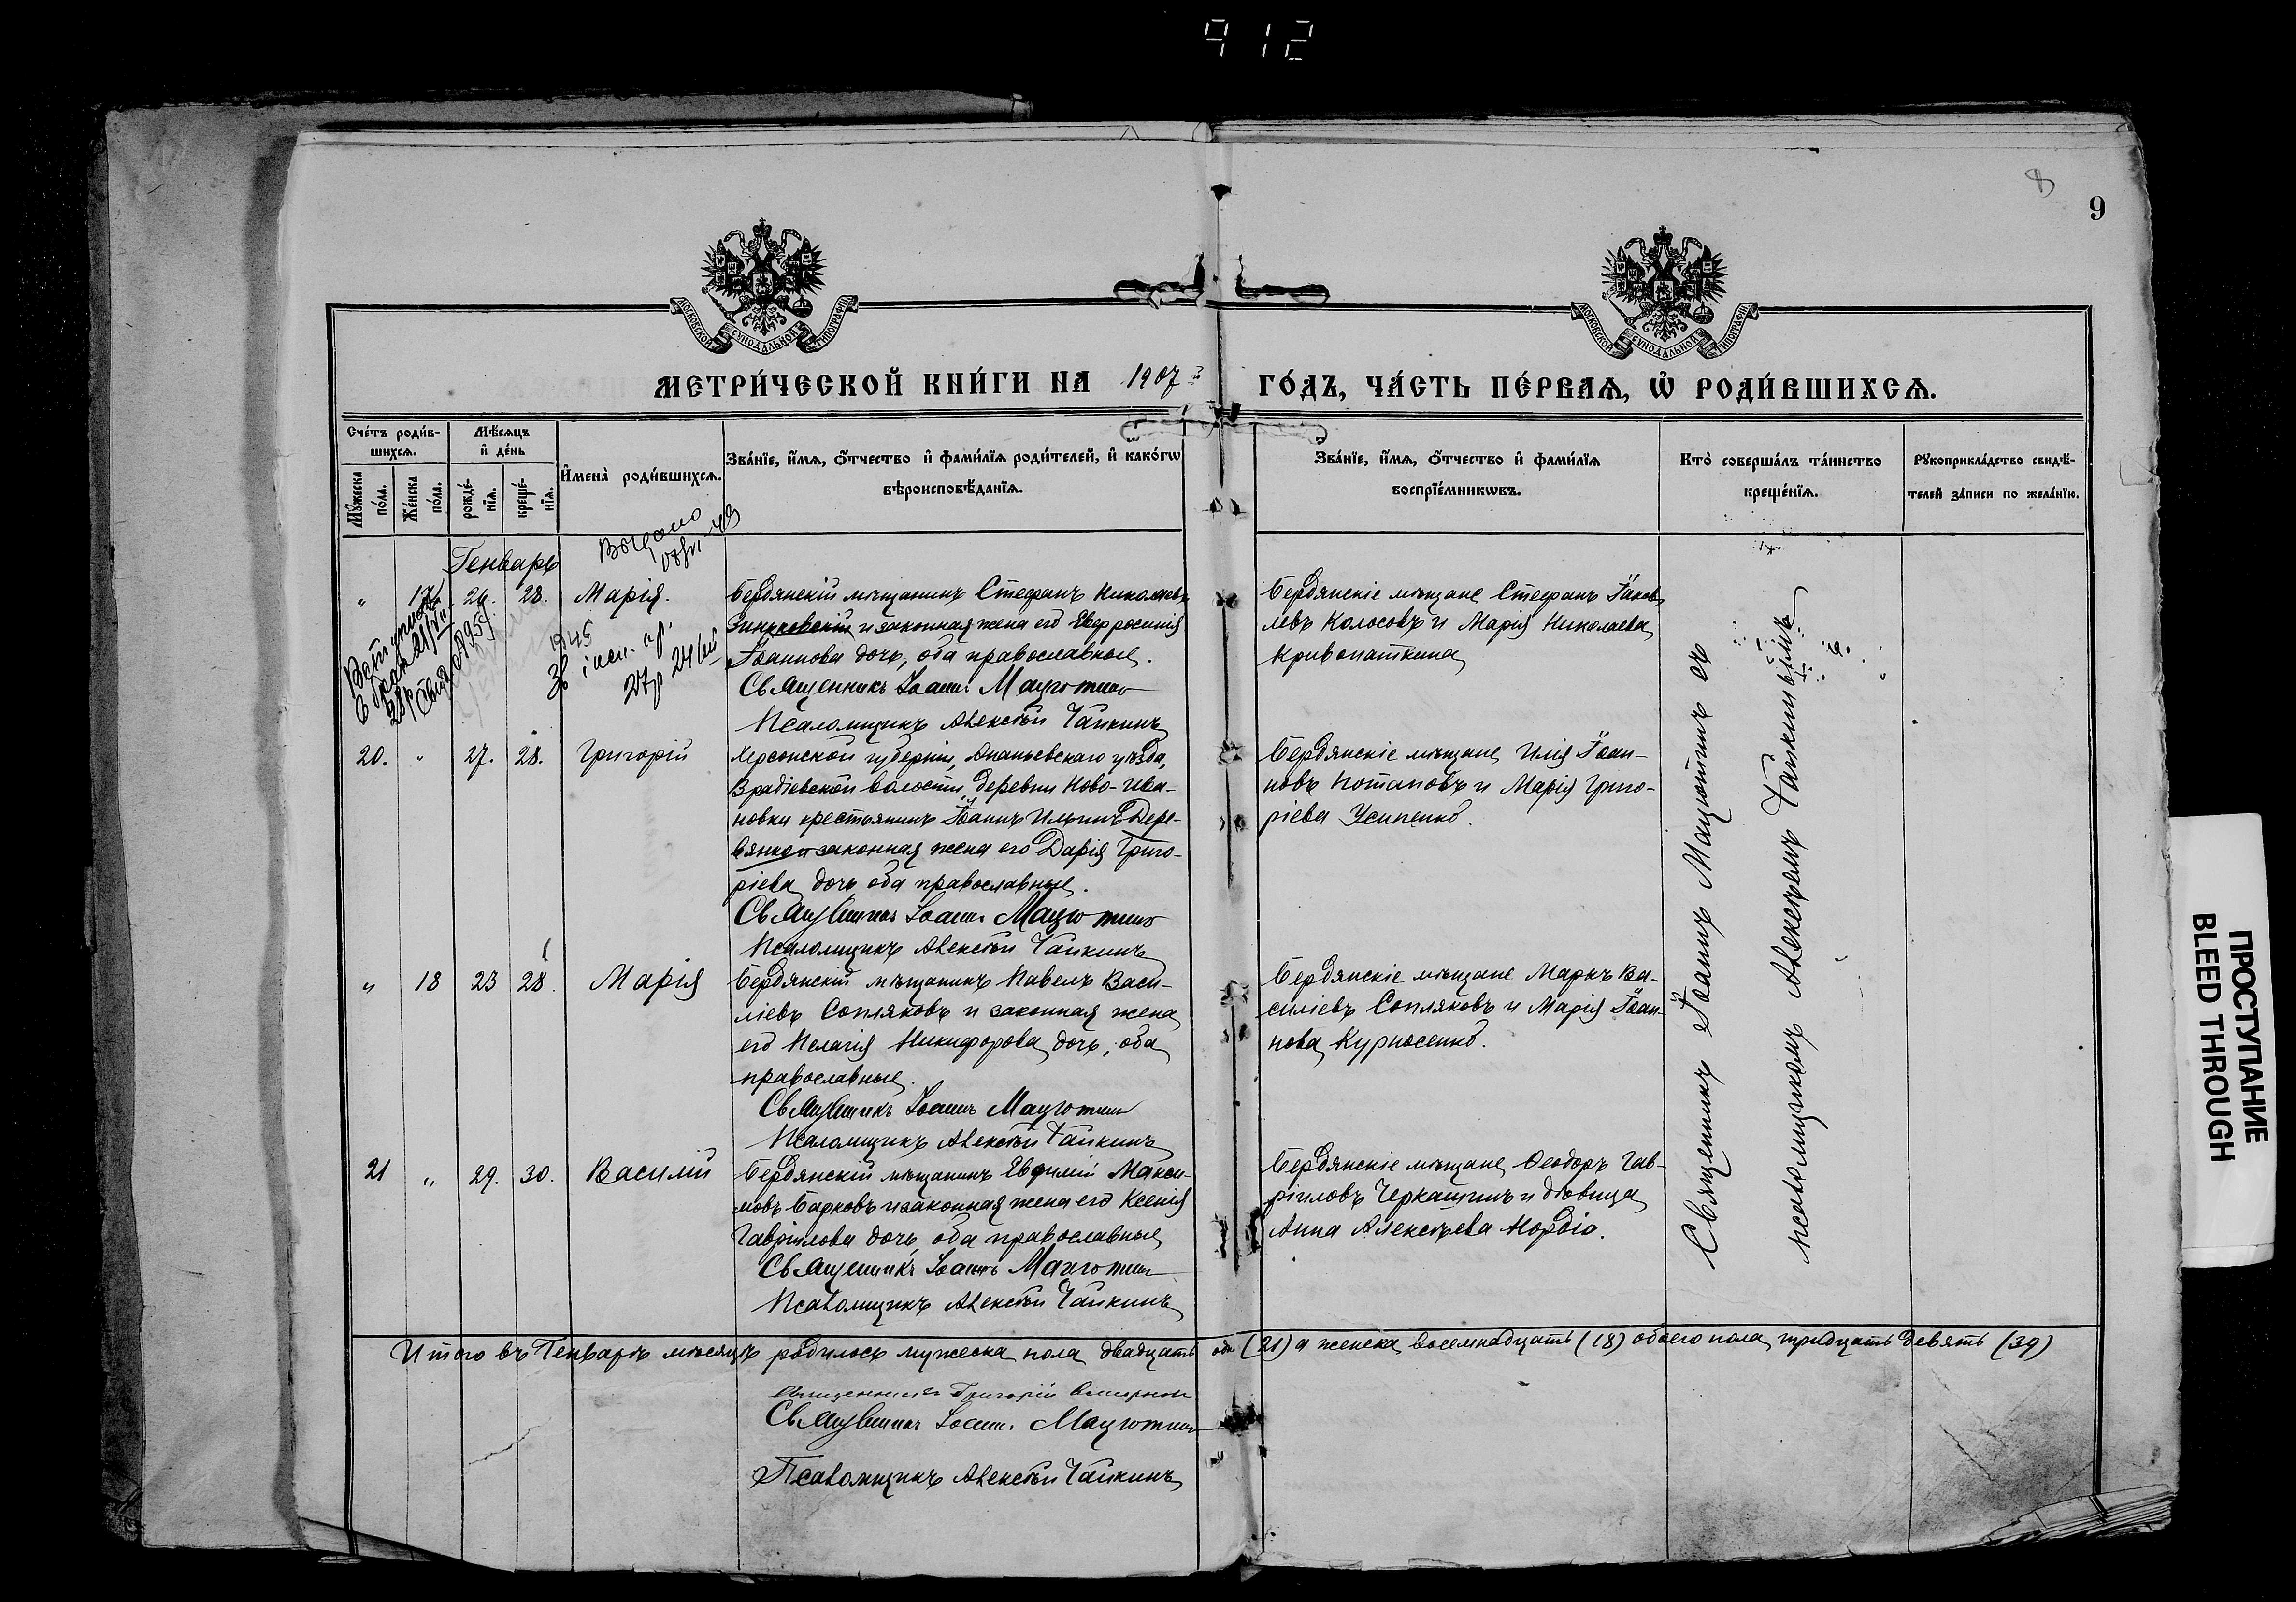 912
8
9
МОСКОВСКОЙ СѴНОДАЛЬНОЙ ТИПОГРАФІИ
МОСКОВСКОЙ СѴНОДАЛЬНОЙ ТИПОГРАФІИ
МЕТРИ́ЧЕСКОЙ КНИ́ГИ НА 1907 ГО́ДЪ, ЧА́СТЬ ПЕ́РВАѦ, Ѡ҆ РОДИ́ВШИХСѦ.
Сче́тъ роди́вшихсѧ.
Мꙋ́жеска по́ла.
Же́нска по́ла.
Мѣ́сѧцъ и҆ де́нь
рожде́нїѧ.
креще́нїѧ.
И҆мена̀ роди́вшихсѧ.
Зва́нїе, и҆́мѧ, ѻ҆́тчество и҆ фами́лїѧ роди́телей, и҆ како́гѡ
вѣроисповѣ́данїѧ.
Зва́нїе, и҆́мѧ, ѻ҆́тчество и҆ фами́лїѧ
воспрїе́мникѡвъ.
Кто̀ соверша́лъ та́инство
креще́нїѧ.
Рꙋкоприкла́дство свидѣ́-
телей за́писи по жела́нїю.
Генварь
" 17 26. 28. Марія.
Бердянскій мѣщанинъ Стефанъ Николаевъ
Зинковскій и законная жена его Евфросинія
Іоаннова дочь, оба православные.
Священникъ Іоаннъ Мацютинъ
Псаломщикъ Алексѣй Чайкинъ
Бердянскіе мѣщане Стефанъ Іаков-
левъ Колосовъ и Марія Николаева
Кривопаткина
1945
20. " 27. 28. Григорій
Херсонской губерніи, Ананьевскаго уѣзда,
Врадіевской волости, деревни Ново-Ива-
новки крестьянинъ Іоаннъ Ильинъ Дере-
вянко и законная жена его Дарія Григо-
ріева дочь оба православные.
Священникъ Іоаннъ Мацютинъ
Псаломщикъ Алексѣй Чайкинъ
Бердянскіе мѣщане Илія Іоан-
новъ Потаповъ и Марія Григо-
ріева Усипенко.
" 18 23 28. Марія
Бердянскій мѣщанинъ Павелъ Васи-
ліевъ Сопляковъ и законная жена
его Пелагія Никифорова дочь, оба
православные.
Священникъ Іоаннъ Мацютинъ
Псаломщикъ Алексѣй Чайкинъ
Бердянскіе мѣщане Маркъ Ва-
силіевъ Сопляковъ и Марія Іоан-
нова Курносенко.
21 " 29. 30. Василій
Бердянскій мѣщанинъ Евфимій Макси-
мовъ Барковъ и законная жена его Ксенія
Гавріилова дочь, оба православные
Священникъ Іоаннъ Мацютинъ
Псаломщикъ Алексѣй Чайкинъ
Бердянскіе мѣщане Ѳеодоръ Гав-
ріиловъ Черкашинъ и дѣвица
Анна Алексѣева
Священникъ Іоаннъ Мацютинъ съ
псаломщикомъ Алексѣемъ Чайкинымъ
Итого въ Генварѣ мѣсяцѣ родилось мужеска пола двадцать одн (21) а женска восемнадцать (18) обоего пола тридцать девять (39)
Священникъ Григорій
Священникъ Іоаннъ Мацютинъ
Псаломщикъ Алексѣй Чайкинъ
ПРОСТУПАНИЕ
BLEED THROUGH